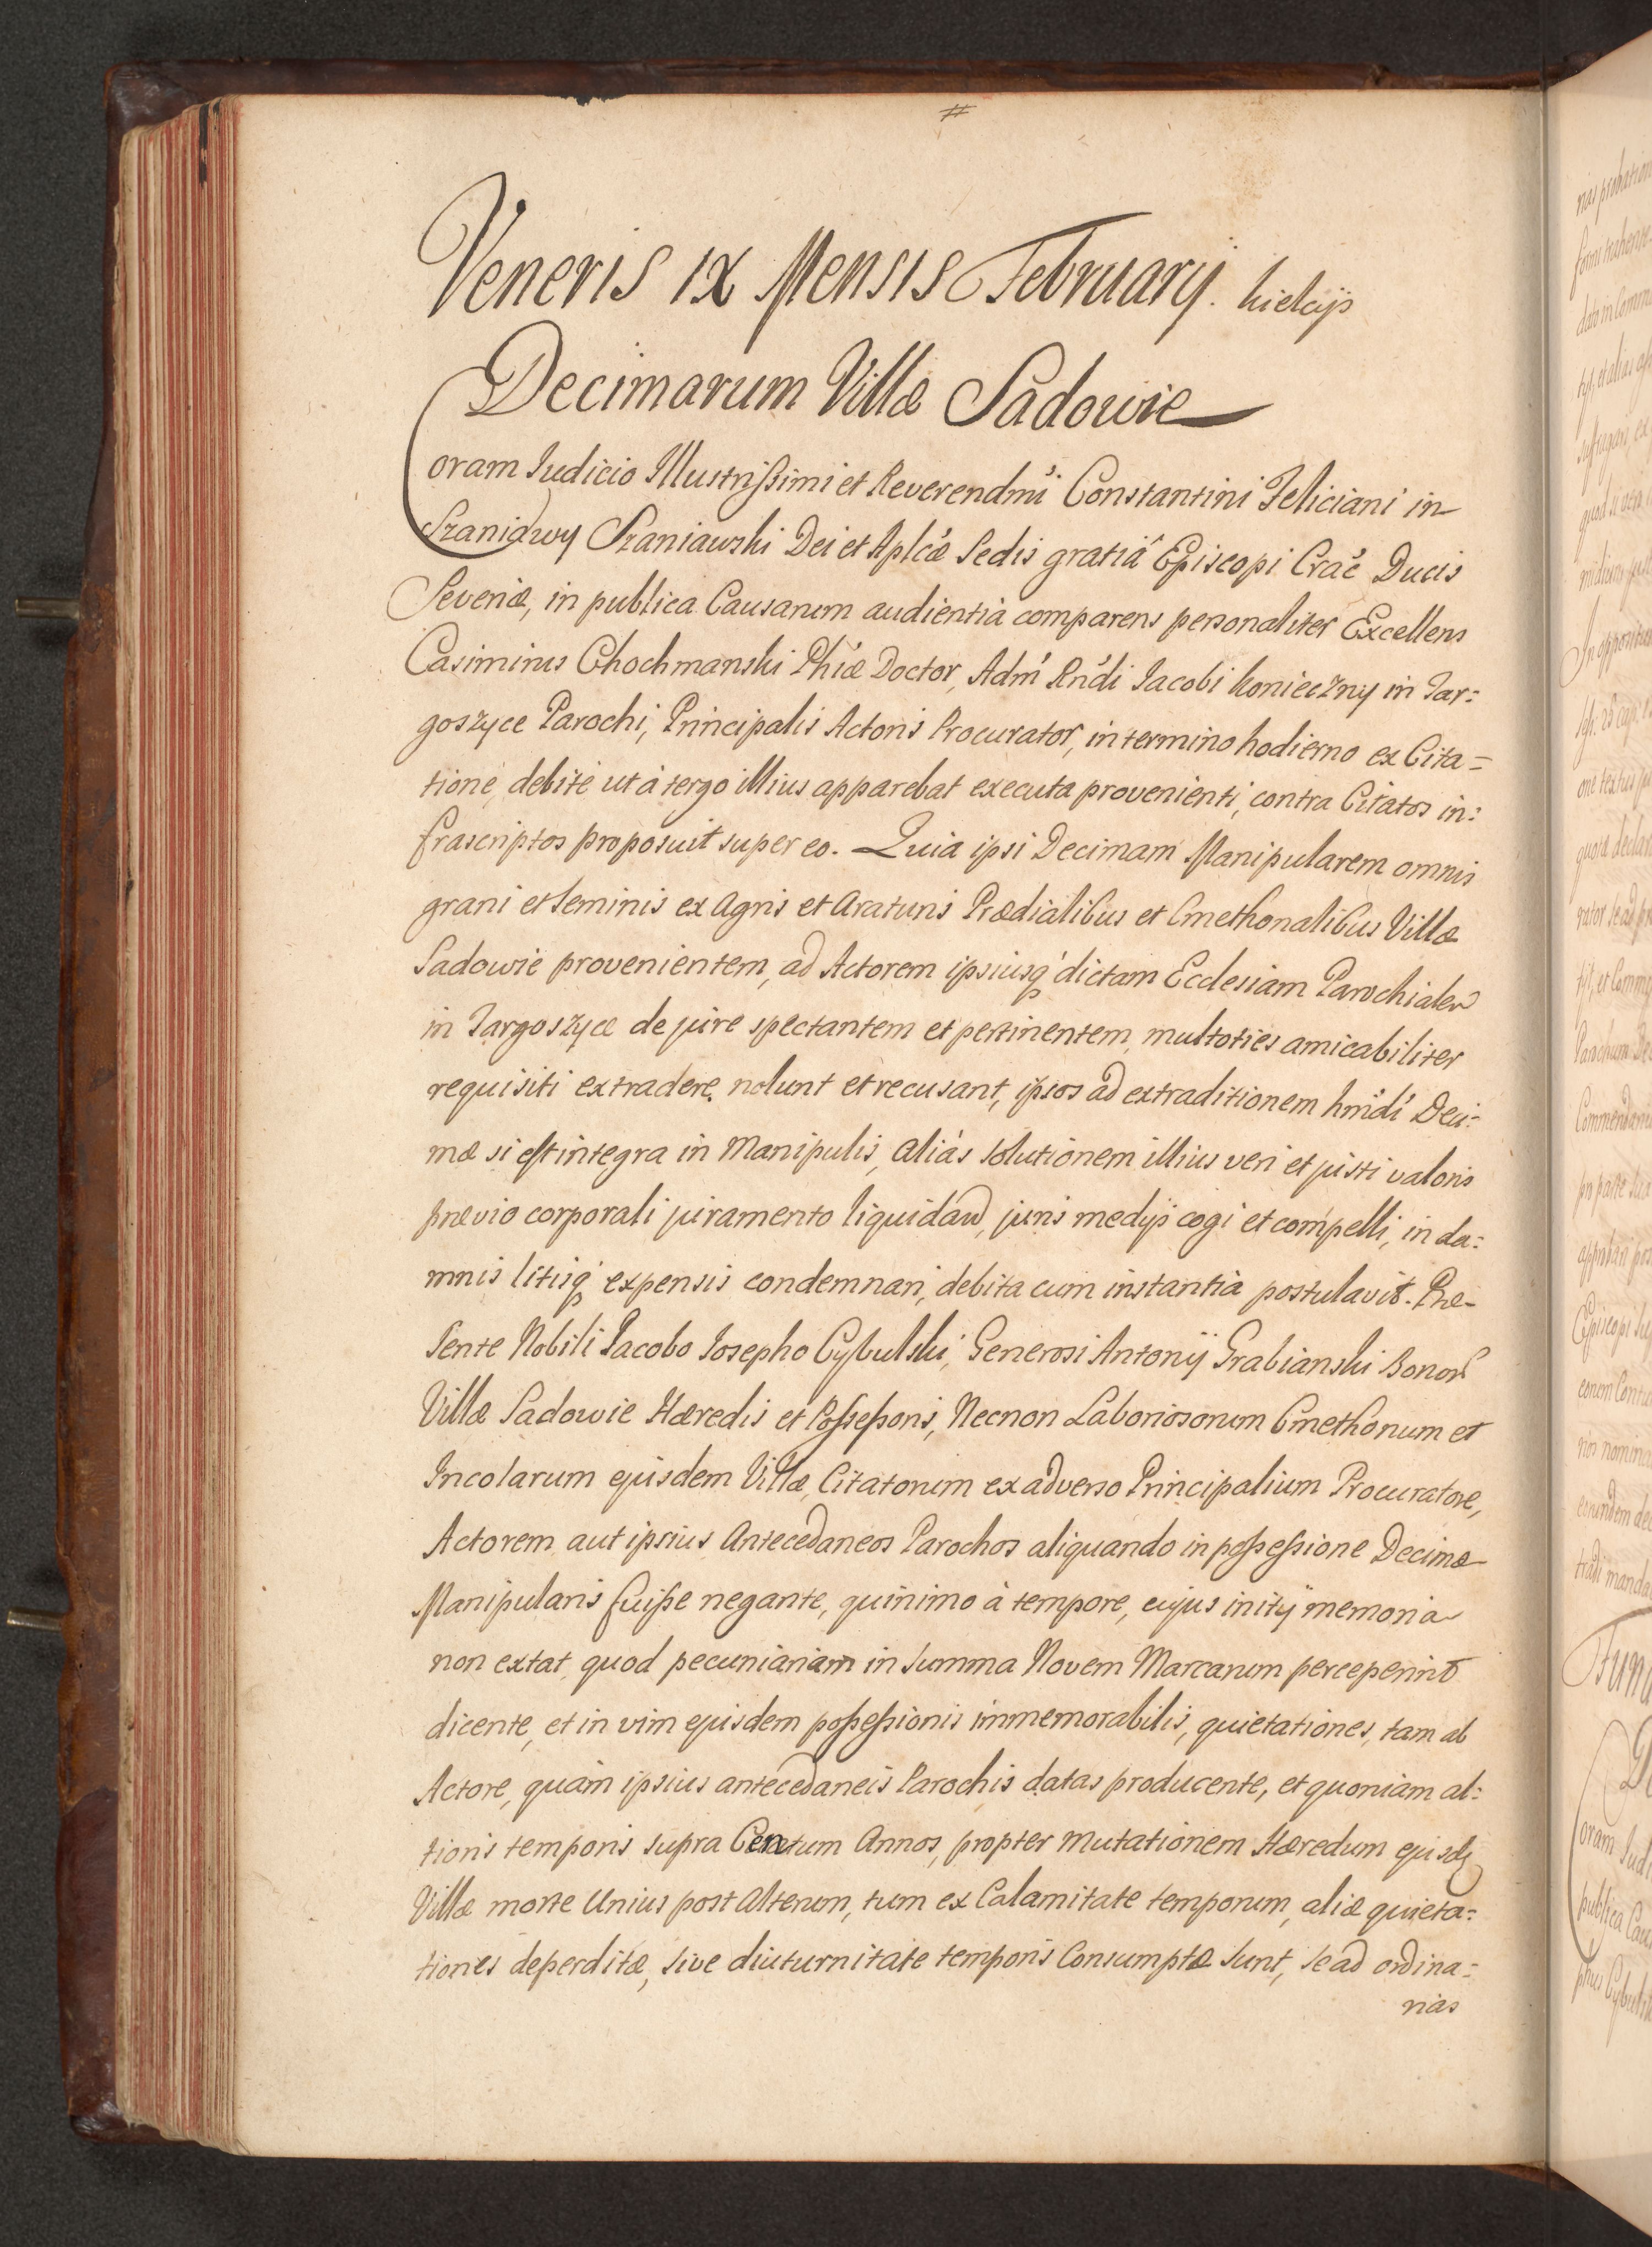 #
Veneris IX Mensis February. kielcijs
Decimarum Villæ Sadowie
Coram Iudicio Illustrissimi et Reverendmi Constantini Feliciani in
Szaniawy Szaniawski Dei et Aplcæ Sedis gratiâ Episcopi Crac Ducis
Severiæ, in publica Causarum audientia comparens personaliter Excellens
Casimirus Chochmanski Phiæ Doctor, Adm Rndi Iacobi Konieczny in Tar:
goszyce Parochi, Principalis Actoris Procurator, in termino hodierno ex Cita=
tione, debitè ut à tergo illius apparebat executa provenienti, contra Citatos in:
frascriptos proposuit super eo. Quia ipsi Decimam Manipularem omnis
grani et seminis ex Agris et Araturis Prædialibus et Cmethonalibus Villæ
Sadowie provenientem, ad Actorem ipsiusq dictam Ecclesiam Parochialem
in Targoszyce de jure spectantem et pertinentem, multoties amicabiliter
requisiti extradere nolunt et recusant, ipsos ad extraditionem hmdi Deci:
mæ si est integra in Manipulis, aliàs solutionem illius veri et justi valoris
prævio corporali juramento liquidand, juris medijs cogi et compelli, in da:
mnis litisq expensis condemnari, debita cum instantia postulavit. Præ-
sente Nobili Iacobo Iosepho Cybulski, Generosi Antonij Grabianski Bonor
Villæ Sadowie Hæredis et Possessoris, Necnon Laboriosorum Cmethonum et
Incolarum ejusdem Villæ, Citatorum ex adverso Principalium Procuratore,
Actorem aut ipsius Antecedaneos Parochos aliquando in possessione Decimæ
Manipularis fuisse negante, quinimo à tempore, cujus initij memoria
non extat, quod pecuniariam in summa Novem Marcarum perceperint
dicente, et in vim ejusdem possessionis immemorabilis, quietationes, tam ab
Actore, quàm ipsius antecedaneis Parochis datas producente, et quoniam al:
tioris temporis supra Centum Annos, propter mutationem Hæredum ejusdq
Villæ morte Unius post Alterum, tum ex Calamitate temporum, aliæ quieta:
tiones deperditæ, sive diuturnitate temporis Consumptæ sunt, se ad ordina:
rias